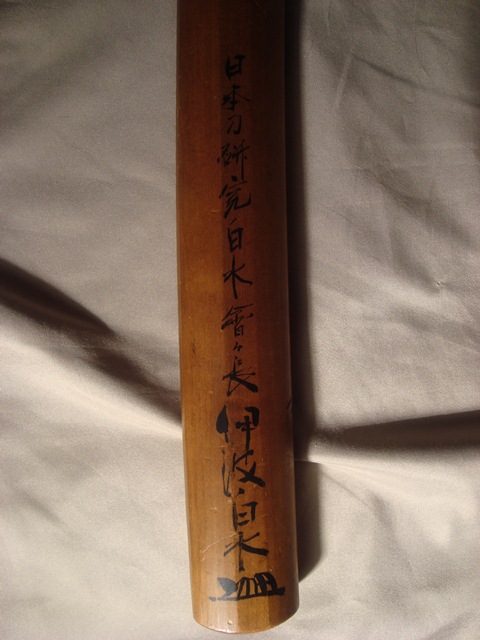 日本刀研究白水會々長伊波白水